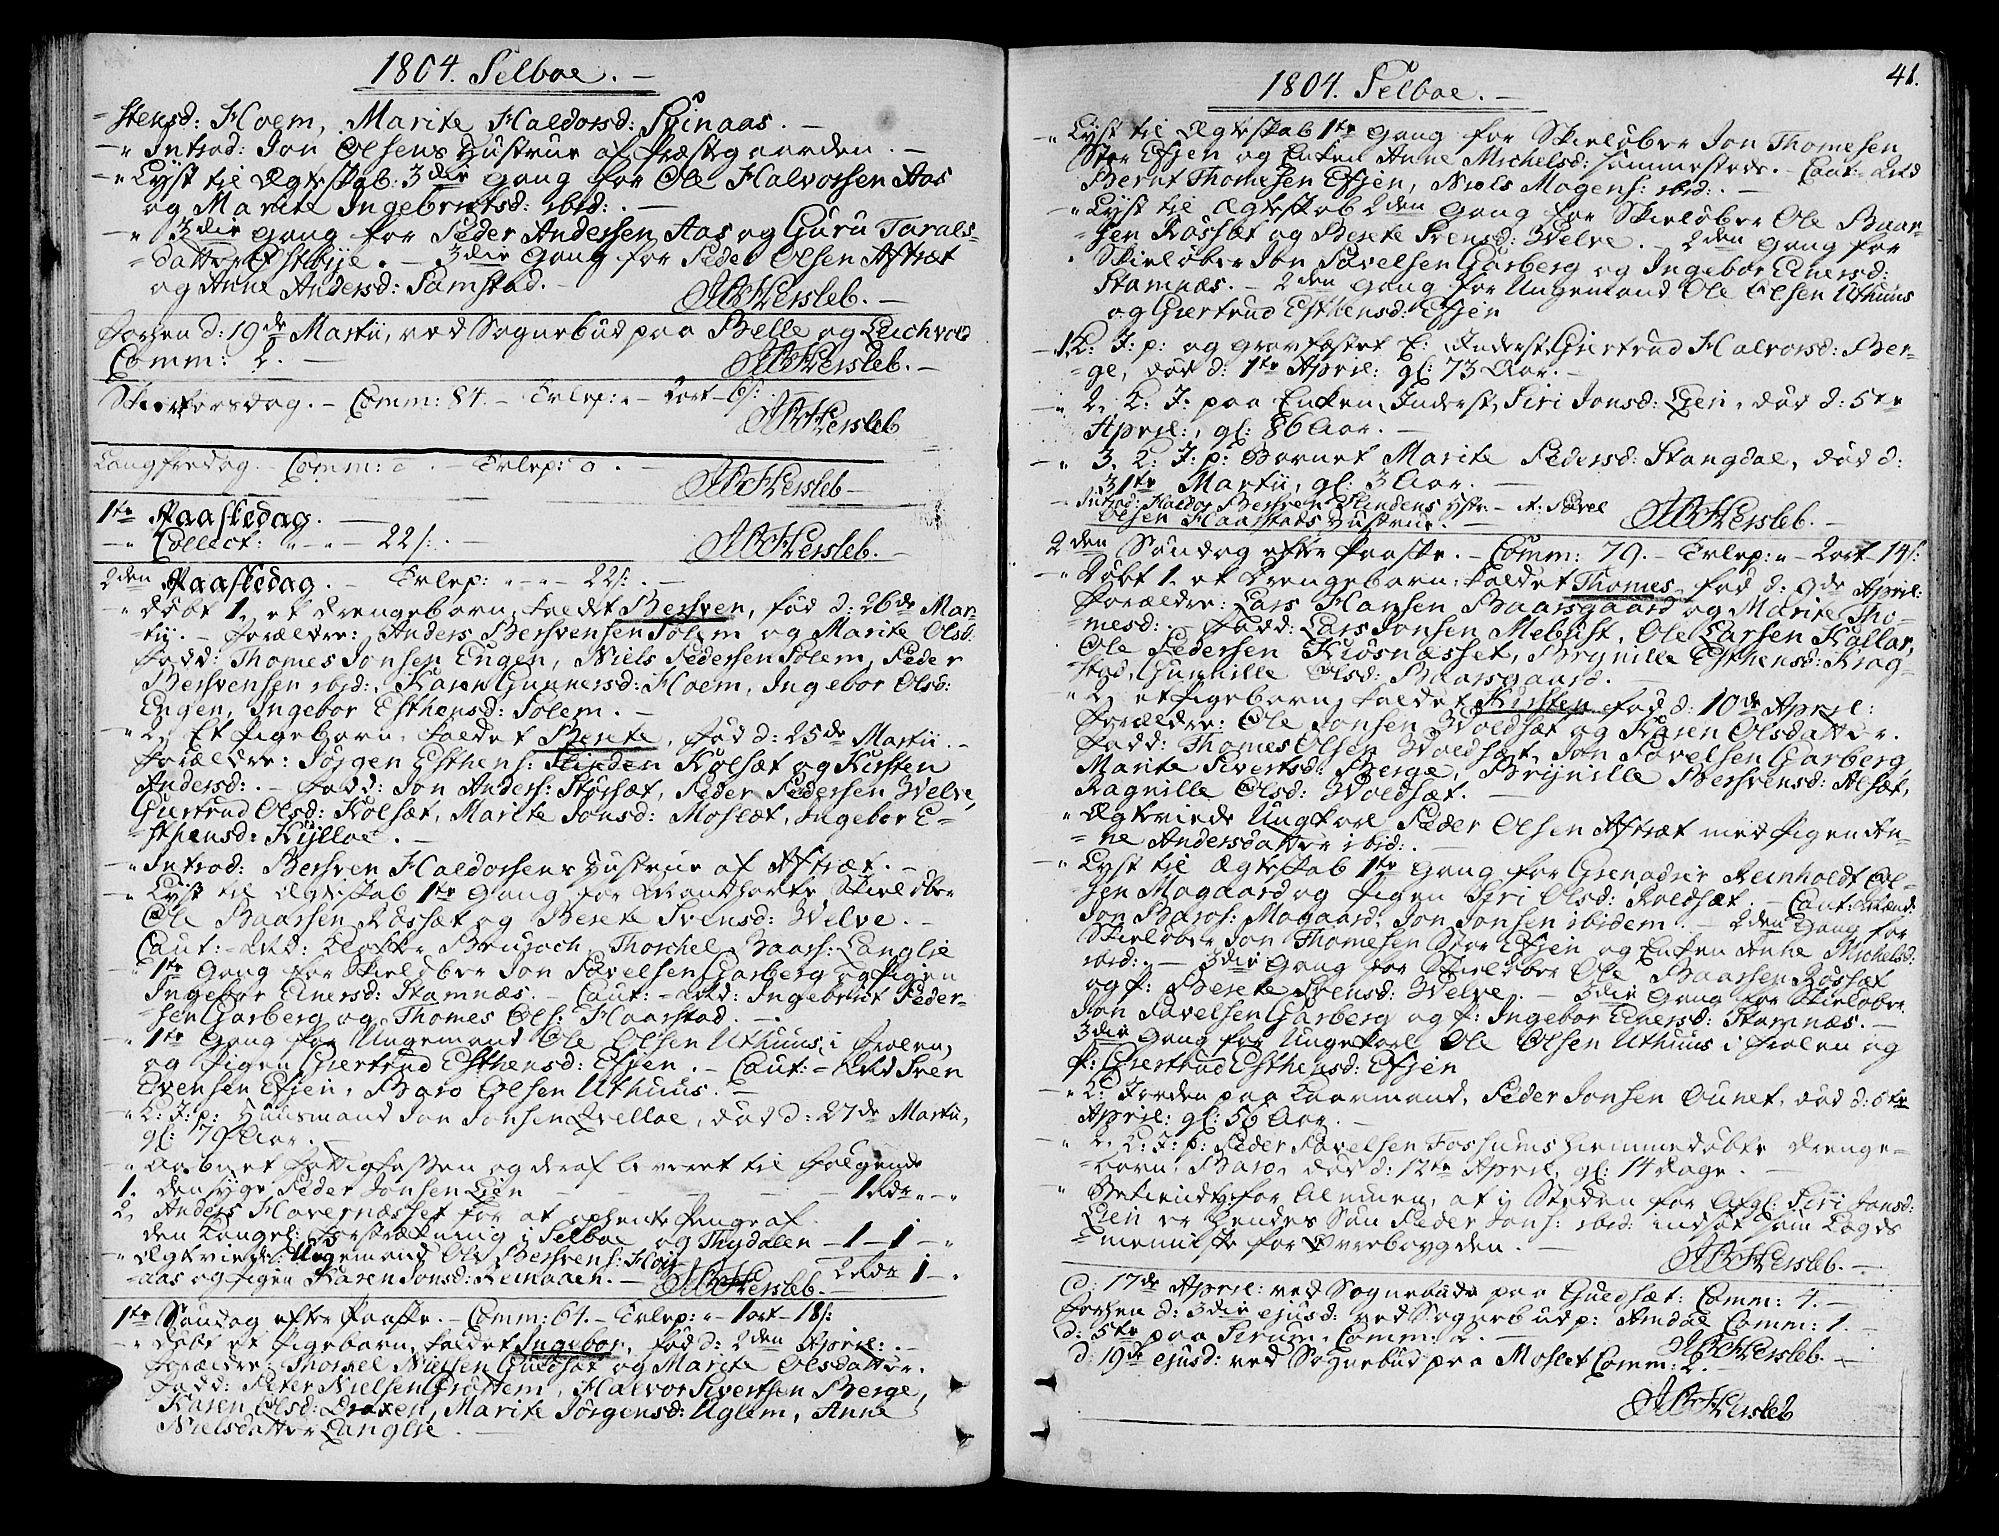 1804. Selboe. —
stensd: Hoem, Marite Haldorsd: Stinaas. —
" Introd: Jon Olsens Hustrue af Præstegaarden. —
" Lyst til Ægteskab. 3die Gang for Ole Halvorsen Aas
og Marite Ingebrigtsd: ibid: —
" 3die Gang for Peder Andersen Aas og Guru Tarals-
datter Østbye. — 3die Gang for Peder Olsen Aftræt
og Anne Andersd: Samstad. —
HBHersleb. —
Forhen d: 19de Martii, ved Sognebud paa Belle og Eichvold
Comm: 2. —
HBHersleb. —
Skiertorsdag. — Comm: 84. — Erlep: " 2ort 6/:
HBHersleb
Langfredag. — Comm: 0. — Erlep: 0. —
HBHersleb —
1te Paaskedag. —
" Collect: " " 22/: —
HBHersleb. —
2den Paaskedag. — Erlep: " " 22/: —
" døbt 1, et drengebarn, kaldet Bersven, fød d: 26de Mar-
tii. — Forældre: Anders Bersvensen Solem og Marite Olsd:
Fadd: Thomes Jonsen Engen, Niels Pedersen Solem, Peder
Bersvensen ibid:, Karen Gunnersd: Hoem, Ingebor Olsd:
Engen, Ingebor Esthensd: Solem. —
" 2, Et Pigebarn, kaldet Berete, fød d: 25de Martii. —
Forældre: Jørgen Esthens: Kolsæt og Kirsten
Andersd: — Fadd: Jon Anders: Storsæt, Peder Pedersen Welve,
Giertrud Olsd: Kolsæt, Marite Jonsd: Moslet, Ingebor E-
sthensd: Kylloe. —
" Introd: Bersven Haldorsens Hustrue af Aftræt. —
" Lyst til Ægteskab 1te Gang for Skieløber
Ole Baarsen Røssæt og Berete Svensd: Welve. —
Caut: Thorchel Baars: Langlie
" 1te Gang for Skieløber Jon Pavelsen Garberg og Pigen
Ingebor Einersd: Stamnæs. — Caut: Ingebrigt Peder-
sen Garberg og Thomes Ols: Haarstad. —
" 1te Gang for Ungemand Ole Olsen Uthuus, i Frolen,
og Pigen Giertrud Esthensd: Efsjen. — Caut: Sven
Evensen Efsjen, Baro Olsen Uthuus. —
" L: J: p: Huusmand Jon Jonsen Qvelloe, død d: 27de Martii,
gl: 79 Aar. —
" Aabnet Fattigbøssen og deraf leveret til følgende
1. den syge Peder Jonsen Lien — 1 Rdr " "
2, Anders Hovernæsset for at ophente Penge af
den Kongel: Forstrækning i Selboe og Thydalen — 1 — 1 — "
" Ægteviede Ungemand Ole Bersvens: Høi-
aas og Pigen Karen Jonsd: Reinaaen. — 2 Rdr 1 — "
HBHersleb. —
1te Søndag efter Paaske. — Comm: 64. — Erlep: " 1ort 18/:
" døbt et Pigebarn, kaldet Ingebor, fød d: 2den April: —
Forældre: Thorkel Nielsen Guldsæt og Marite Olsdatter.
Fadd: Peter Nielsen Grøttem, Halvor Sivertsen Berge,
Karen Olsd: Draxen, Marite Jørgensd: Uglem, Anne
Nielsdatter Langlie. —
41.
1804. Selboe. —
" Lyst til Ægteskab 1te Gang for Skieløber Jon Thomesen
Stor Efsjen og Enken Anne Michelsd: sammesteds. — Caut:
Bernt Thomesen Efsjen, Niels Mogens: ibid: —
" Lyst til Ægteskab 2den Gang for Skieløber Ole Baar-
sen Røssæt og Berete Svensd: Welve. — 2den Gang for
Skieløber Jon Pavelsen Garberg og Ingebor Einersd:
Stamnæs. — 2den Gang for Ungemand Ole Olsen Uthuus
og Giertrud Esthensd: Efsjen
1. L: J: p: og gravfæstet E: Inderst, Giertrud Halvorsd: Ber-
ge, død d: 1te April: gl: 73 Aar. —
" 2, L: J: paa Enken, Inderst, Siri Jonsd: Lien, død d: 5te
April:, gl: 86 Aar. —
" 3, L: J: p: Barnet Marite Pedersd: Stangdal, død d:
31te Martii, gl: 3 Aar. —
" Introd: Haldor Bersven Slindens Hstr: — it: Pavel
Olsen Haarstads Hustrue. —
HBHersleb. —
2den Søndag efter Paaske. — Comm: 79. — Erlep: " 2ort 14/:
" døbt 1. et Drengebarn, kaldet Thomes, fød d: 9de April:
Forældre: Lars Hansen Baarsgaard og Marite Tho-
mesd: — Fadd: Lars Jonsen Mebust, Ole Larsen Kallar,
Ole Pedersen Kiøsnæsset, Brynille Esthensd: Krog-
stad, Gunnille Olsd: Baarsgaard. —
" 2, et Pigebarn, kaldet Kirsten fød d: 10de April:
Forældre: Ole Jonsen Woldsæt og Karen Olsdatter.
Fadd: Thomes Olsen Woldsæt, Jon Pavelsen Garberg,
Marite Sivertsd: Berge, Brynille Bersvensd: Alsæt,
Ragnille Olsd: Woldsæt. —
" Ægteviede Ungkarl Peder Olsen Aftræt med Pigen An-
ne Andersdatter ibid: —
" Lyst til Ægteskab 1te Gang for Grenadeer Reinholdt Ol-
sen Mogaard og Pigen Siri Olsd: Roldsæt. — Caut:
Jon Baros: Mogaard, Jon Jonsen ibidem. — 2den Gang for
Skieløber Jon Thomesen Stor Efsjen og Enken Anne Michelsd:
ibid: — 3die Gang for Skieløber Ole Baarsen Røssæt
og P: Berete Svensd: Welve. — 3die Gang for Skieløber
Jon Pavelsen Garberg og P: Ingebor Einersd: Stamnæs. —
3die Gang for Ungekarl Ole Olsen Uthuus i Frolen og
P: Giertrud Esthensd: Efsjen
" L: Jorden paa Laarmand, Peder Jonsen Ounet, død d: 6te
April: gl: 56 Aar. —
" 2, L: J: p: Peder Pavelsen Fossums hiemmedøbte Drenge-
barn, Baro, død d: 12te April, gl: 14 Dage. —
" Bekiendt for Almuen, at i Steden for Afgl: Siri Jonsd:
Lien er hendes Søn Peder Jons: ibid: indsat som Lægds
memmiske for Øverbøygden. —
HBHersleb. —
d: 17de April: ved Sognebud paa Guldsæt: Comm: 4. —
Forhen d: 3die ejusd: ved Sognebud p: Amdal Comm: 1. —
d: 5te paa Serum, Comm: 2. —
HBHersleb. —
d: 19de ejusd: ved Sognebud paa Moslet Comm: 2
HBHersleb